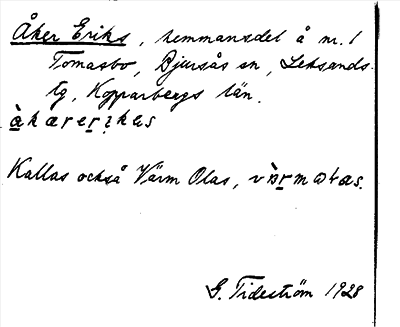 Åker Eriks, hemmansdel å nr. 1
Tomasbo, Bjursås sn, Leksands
tg, Kopparbergs län.
àkærerịkɐs
Kallas också Värm Olas,
G. Tideström 1928